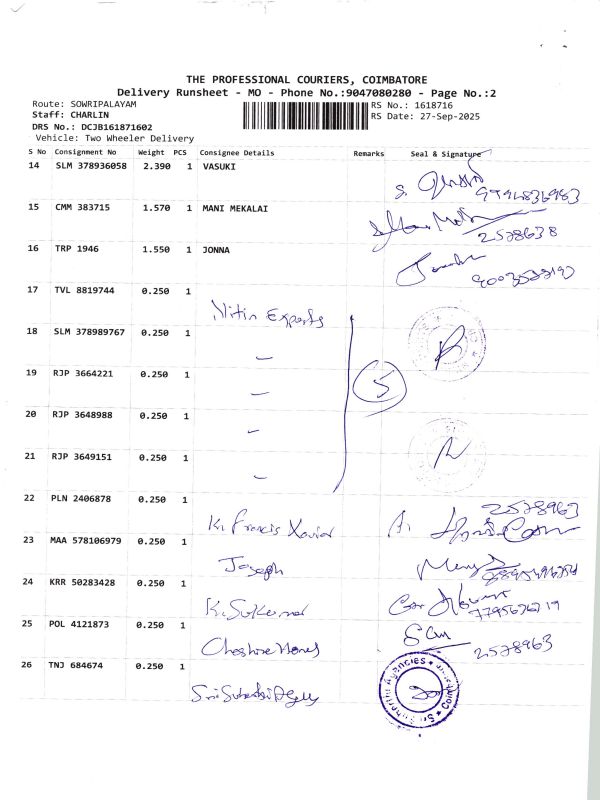 THE PROFESSIONAL COURIERS, COIMBATORE
Delivery Runsheet - MO - Phone No.:9047080280 - Page No.:2
Route: SOWRIPALAYAM
RS No.: 1618716
Staff: CHARLIN
RS Date: 27-Sep-2025
DRS No.: DCJB161871602
Vehicle: Two Wheeler Delivery
S No Consignment No Weight PCS Consignee Details Remarks Seal & Signature
14 SLM 378936058 2.390 1 VASUKI
15 CMM 383715 1.570 1 MANI MEKALAI
2528638
16 TRP 1946 1.550 1 JONNA
17 TVL 8819744 0.250 1
Nitin Exports
18 SLM 378989767 0.250 1
19 RJP 3664221 0.250 1
5
20 RJP 3648988 0.250 1
21 RJP 3649151 0.250 1
22 PLN 2406878 0.250 1
2528963
K. Francis Xavier
23 MAA 578106979 0.250 1
Joseph
24 KRR 50283428 0.250 1
25 POL 4121873 0.250 1
2528963
26 TNJ 684674 0.250 1
Agencies